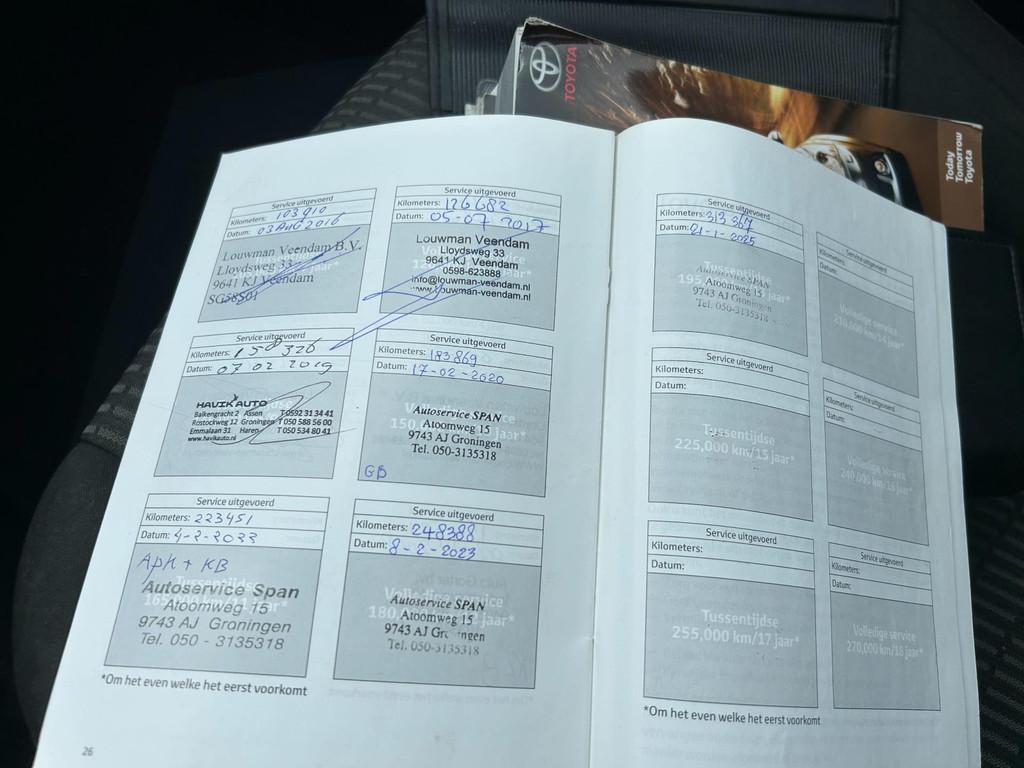 TOYOTA
Today
Tomorrow
Toyota
Service uitgevoerd
Kilometers: 103910
Datum: 03 AUG 2016
Louwman Veendam B.V.
Lloydsweg 33
9641 KJ Veendam
SG58501
Service uitgevoerd
Kilometers: 126682
Datum: 05-07 2017
Louwman Veendam
Lloydsweg 33
9641 KJ Veendam
0598-623888
info@louwman-veendam.nl
www.louwman-veendam.nl
Service uitgevoerd
Kilometers: 158326
Datum: 07 02 2019
HAVIK AUTO
Balkengracht 2 Assen T 0592 31 34 41
Rostockweg 12 Groningen T 050 588 56 00
Emmalaan 31 Haren T 050 534 80 41
www.havikauto.nl
Service uitgevoerd
Kilometers: 183869
Datum: 17-02-2020
Autoservice SPAN
Atoomweg 15
9743 AJ Groningen
Tel. 050-3135318
GB
Service uitgevoerd
Kilometers: 223451
Datum: 4-2-2022
APK + KB
Tussentijdse
Autoservice Span
Atoomweg 15
9743 AJ Groningen
Tel. 050 - 3135318
Service uitgevoerd
Kilometers: 248388
Datum: 8-2-2023
Volledige service
Autoservice SPAN
Atoomweg 15
9743 AJ Groningen
Tel. 050-3135318
*Om het even welke het eerst voorkomt
26
Service uitgevoerd
Kilometers: 313367
Datum: 21-1-2025
Tussentijdse
Autoservice SPAN
Atoomweg 15
9743 AJ Groningen
Tel. 050-3135318
Service uitgevoerd
Kilometers:
Datum:
Volledige service
210,000 km/14 jaar*
Service uitgevoerd
Kilometers:
Datum:
Tussentijdse
225,000 km/15 jaar*
Service uitgevoerd
Kilometers:
Datum:
Volledige service
240,000 km/16 jaar*
Service uitgevoerd
Kilometers:
Datum:
Tussentijdse
255,000 km/17 jaar*
Service uitgevoerd
Kilometers:
Datum:
Volledige service
270,000 km/18 jaar*
*Om het even welke het eerst voorkomt